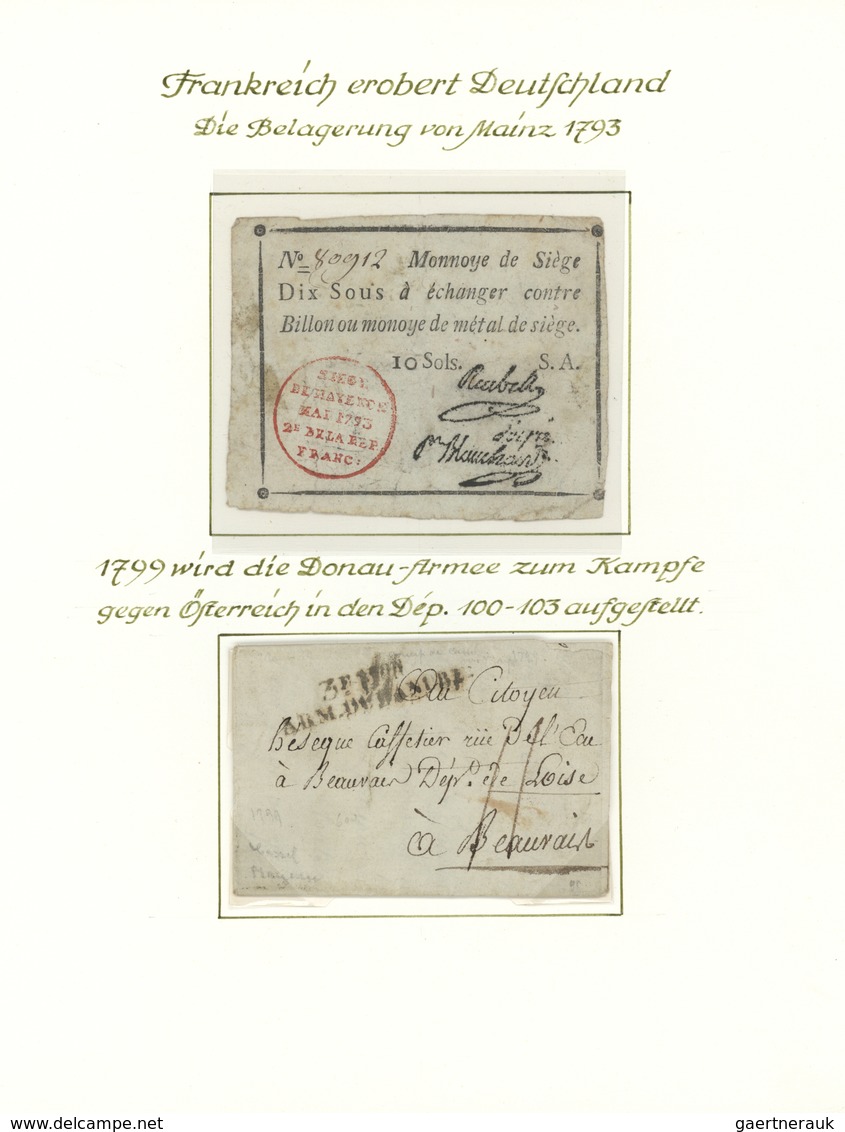 Frankreich erobert Deutſchland
Die Belagerung von Mainz 1793
No 80912 Monnoye de Siège
Dix Sous à échanger contre
Billon ou monoye de métal de siège.
10 Sols. S. A.
MAI 1793
2E DE LA REP
FRANC:
1799 wird die Donau-Armee zum Kampfe
gegen Öſterreich in den Dép. 100-103 aufgeſtellt.
3E DION
ARM. DU DANUBE
Au Citoyen
Caffetier rüe De l'Eau
à Beauvais Dépt. de Loise
à Beauvais
1799
delcampe.net
gaertnerauk